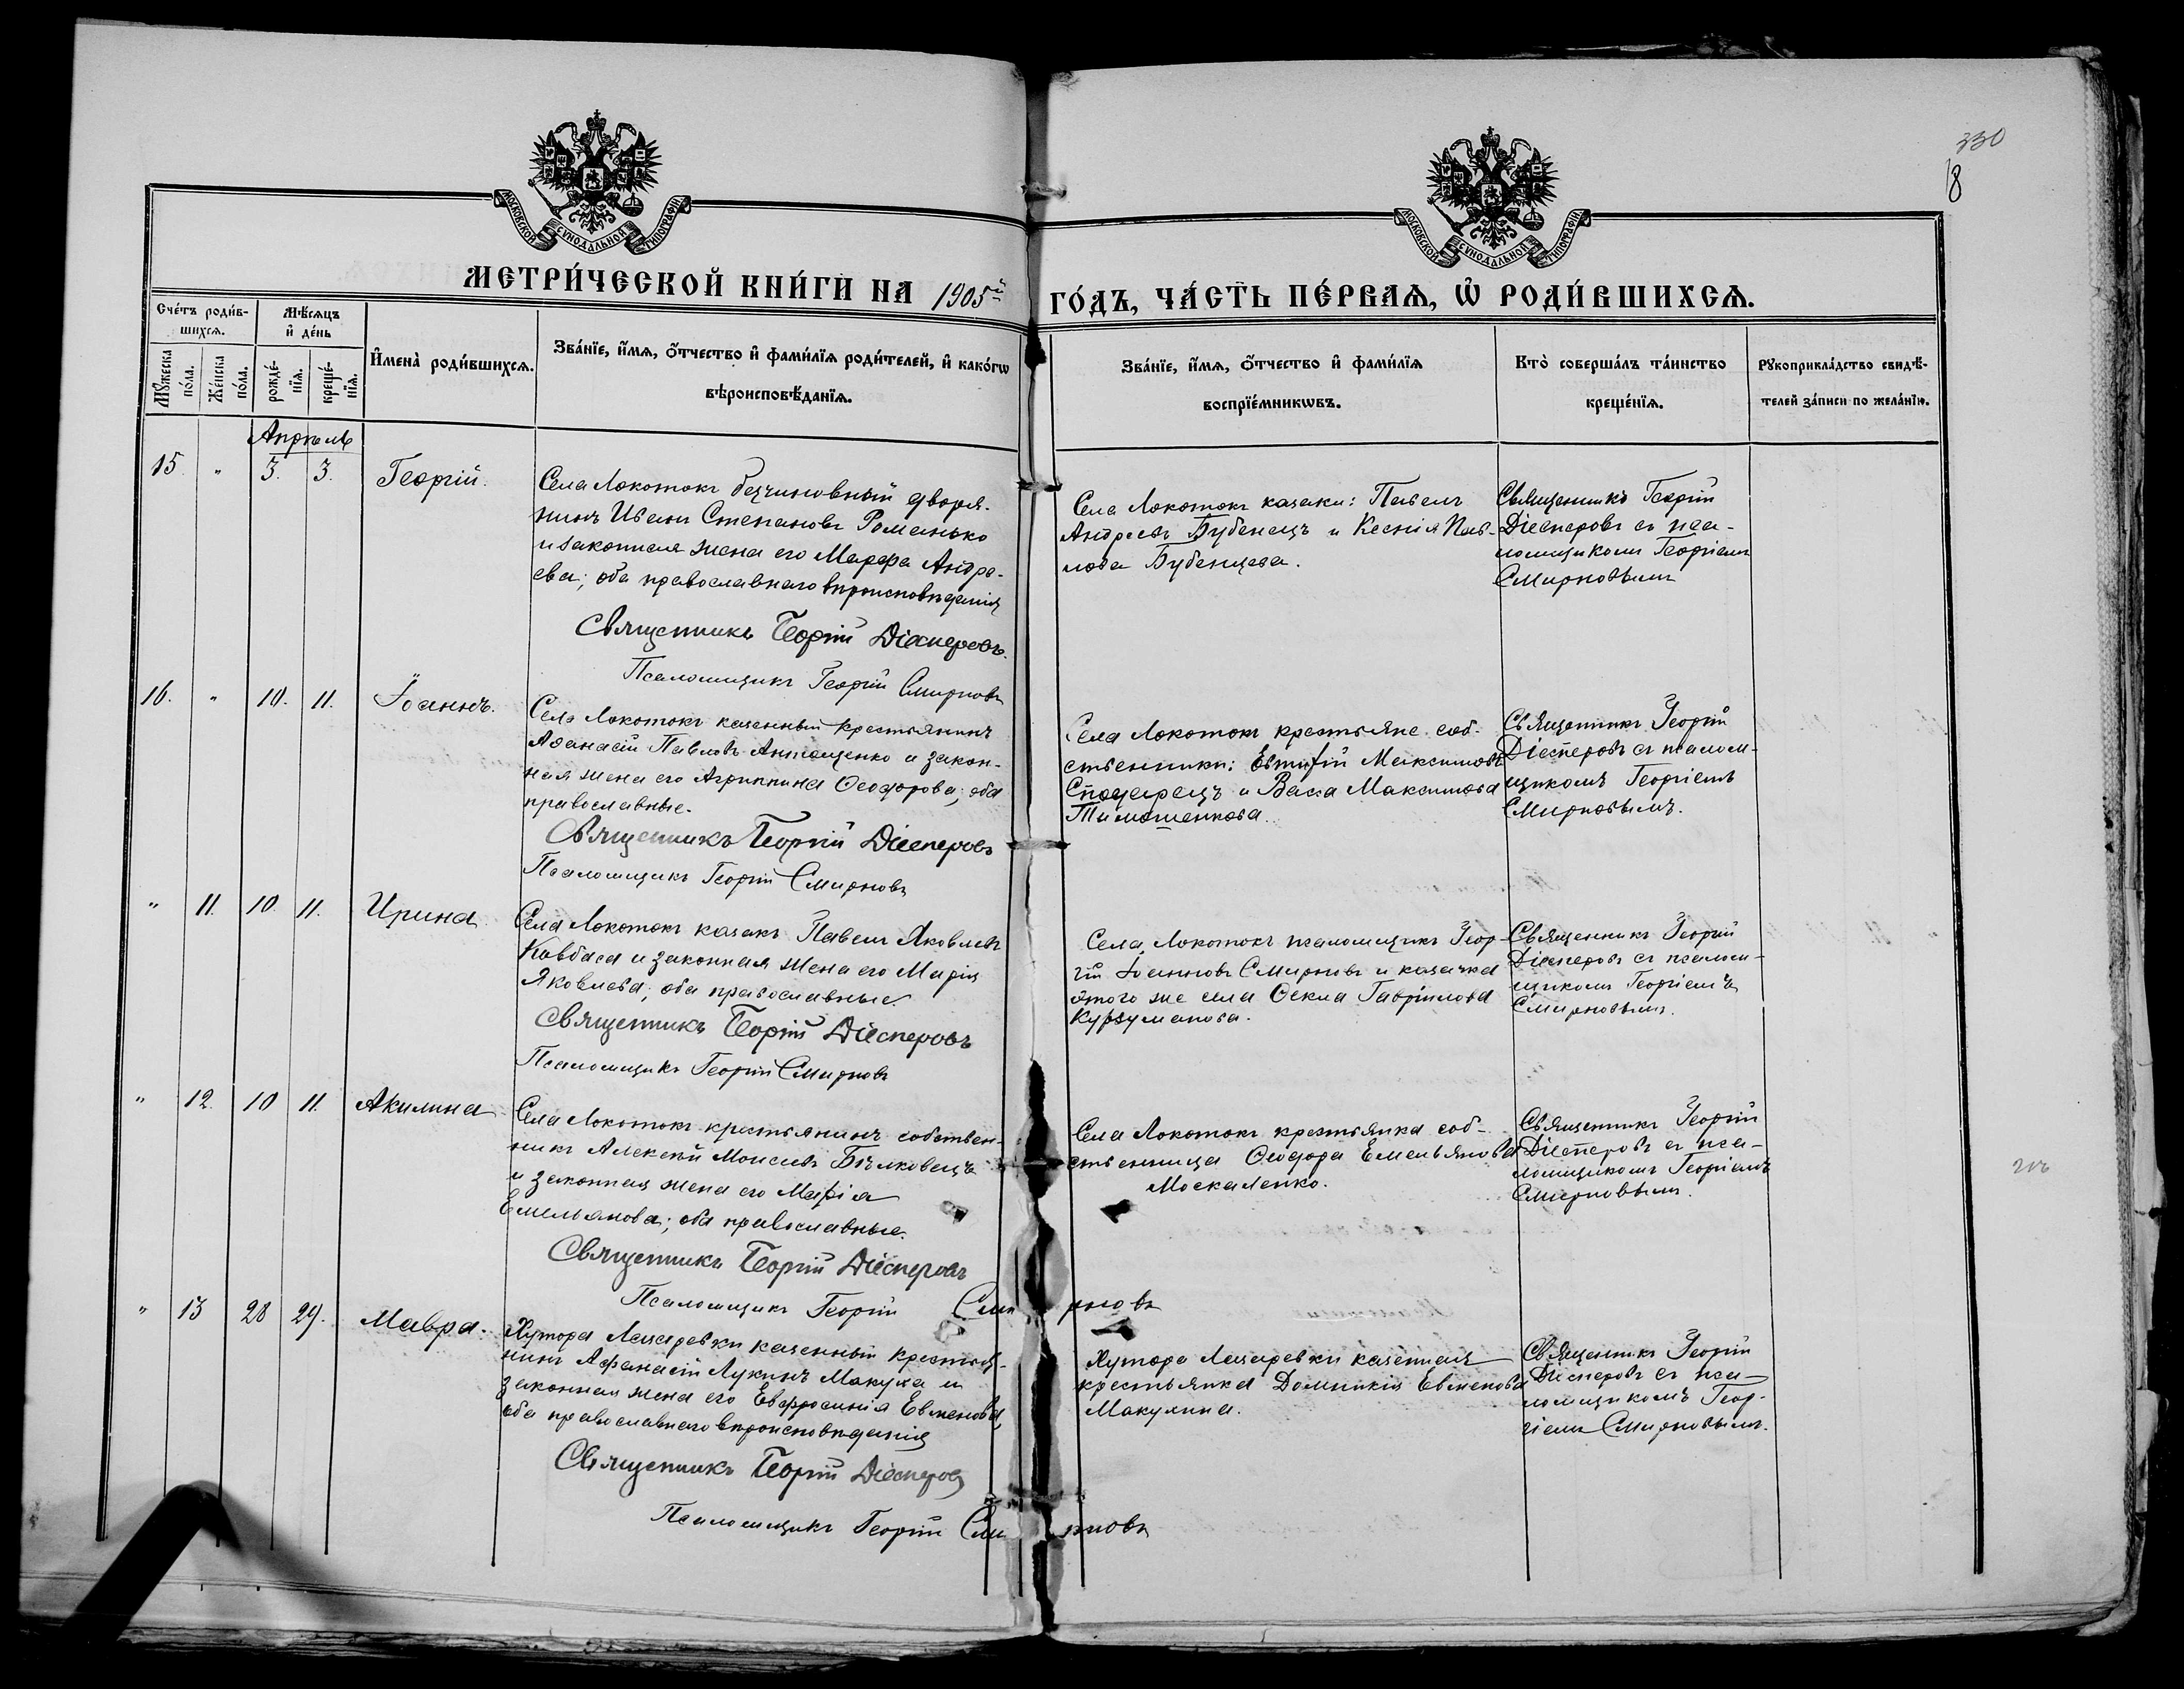 330
8
МОСКОВСКОЙ СѴНОДАЛЬНОЙ ТИПОГРАФІИ
МОСКОВСКОЙ СѴНОДАЛЬНОЙ ТИПОГРАФІИ
МЕТРИ́ЧЕСКОЙ КНИ́ГИ НА 1905й ГО́ДЪ, ЧА́СТЬ ПЕ́РВАѦ, Ѡ҆ РОДИ́ВШИХСѦ.
Сче́тъ роди́в-
шихсѧ.
Мꙋ́жеска по́ла.
Же́нска по́ла.
Мѣ́сѧцъ
и҆ де́нь
рожде́-
нїѧ.
креще́-
нїѧ.
И҆мена̀ роди́вшихсѧ.
Зва́нїе, и҆́мѧ, ѻ҆́тчество и҆ фами́лїѧ роди́телей, и҆ како́гѡ
вѣроисповѣ́данїѧ.
Зва́нїе, и҆́мѧ, ѻ҆́тчество и҆ фами́лїѧ
воспрїе́мникѡвъ.
Кто̀ соверша́лъ та́инство
креще́нїѧ.
Рꙋкоприкла́дство свидѣ́-
телей за́писи по жела́нїю.
Апрѣль
15. " 3. 3. Георгій.
Села Локотокъ безчиновный дворя-
нинъ Иванъ Степановъ Романько
и законная жена его Марфа Андре-
ева; оба православнаго вѣроисповѣданія
Священникъ Георгій Діесперовъ.
Псаломщикъ Георгій Смирновъ
Села Локотокъ казаки: Павелъ
Андреевъ Бубенецъ и Ксенія Пав-
лова Бубенцева.
Священникъ Георгій
Діесперовъ съ пса-
ломщикомъ Георгіемъ
Смирновымъ
16. " 10. 11. Іоаннъ.
Села Локотокъ казенный крестьянинъ
Аѳанасій Павловъ Антощенко и закон-
ная жена его Агриппина Ѳеодорова; оба
православные.
Священникъ Георгій Діесперовъ
Псаломщикъ Георгій Смирновъ
Села Локотокъ крестьяне соб-
ственники: Евтифій Максимовъ
и Васса Максимова
Тимошенкова.
Священникъ Георгій
Діесперовъ съ псалом-
щикомъ Георгіемъ
Смирновымъ.
" 11. 10. 11. Ирина
Села Локотокъ казакъ Павелъ Яковлевъ
Ковбаса и законная жена его Марія
Яковлева; оба православные
Священникъ Георгій Діесперовъ
Псаломщикъ Георгій Смирновъ
Села Локотокъ псаломщикъ Геор-
гій Іоанновъ Смирновъ и казачка
этого же села Ѳекла Гаврілова
Курзуманова.
Священникъ Георгій
Діесперовъ съ псалом-
щикомъ Георгіемъ
Смирновымъ.
" 12. 10 11. Акилина
Села Локотокъ крестьянинъ собствен-
никъ Алексѣй Моисеевъ Бѣлковецъ
и законная жена его Марія
Емельянова; оба православные.
Священникъ Георгій Діесперовъ
Псаломщикъ Георгій Смирновъ
Села Локотокъ крестьянка соб-
ственница Ѳеодора Емельянова
Москаленко.
Священникъ Георгій
Діесперовъ съ пса-
ломщикомъ Георгіемъ
Смирновымъ.
" 13 28 29. Мавра.
Хутора Лазаревки казенный крестья-
нинъ Афанасій Лукинъ Макуха и
законная жена его Евфросинія Евменова,
оба православнаго вѣроисповѣданія
Священникъ Георгій Діесперовъ
Псаломщикъ Георгій Смирновъ
Хутора Лазаревки казенная
крестьянка Домникія Евменова
Макухина.
Священникъ Георгій
Діесперовъ съ пса-
ломщикомъ Геор-
гіемъ Смирновымъ.